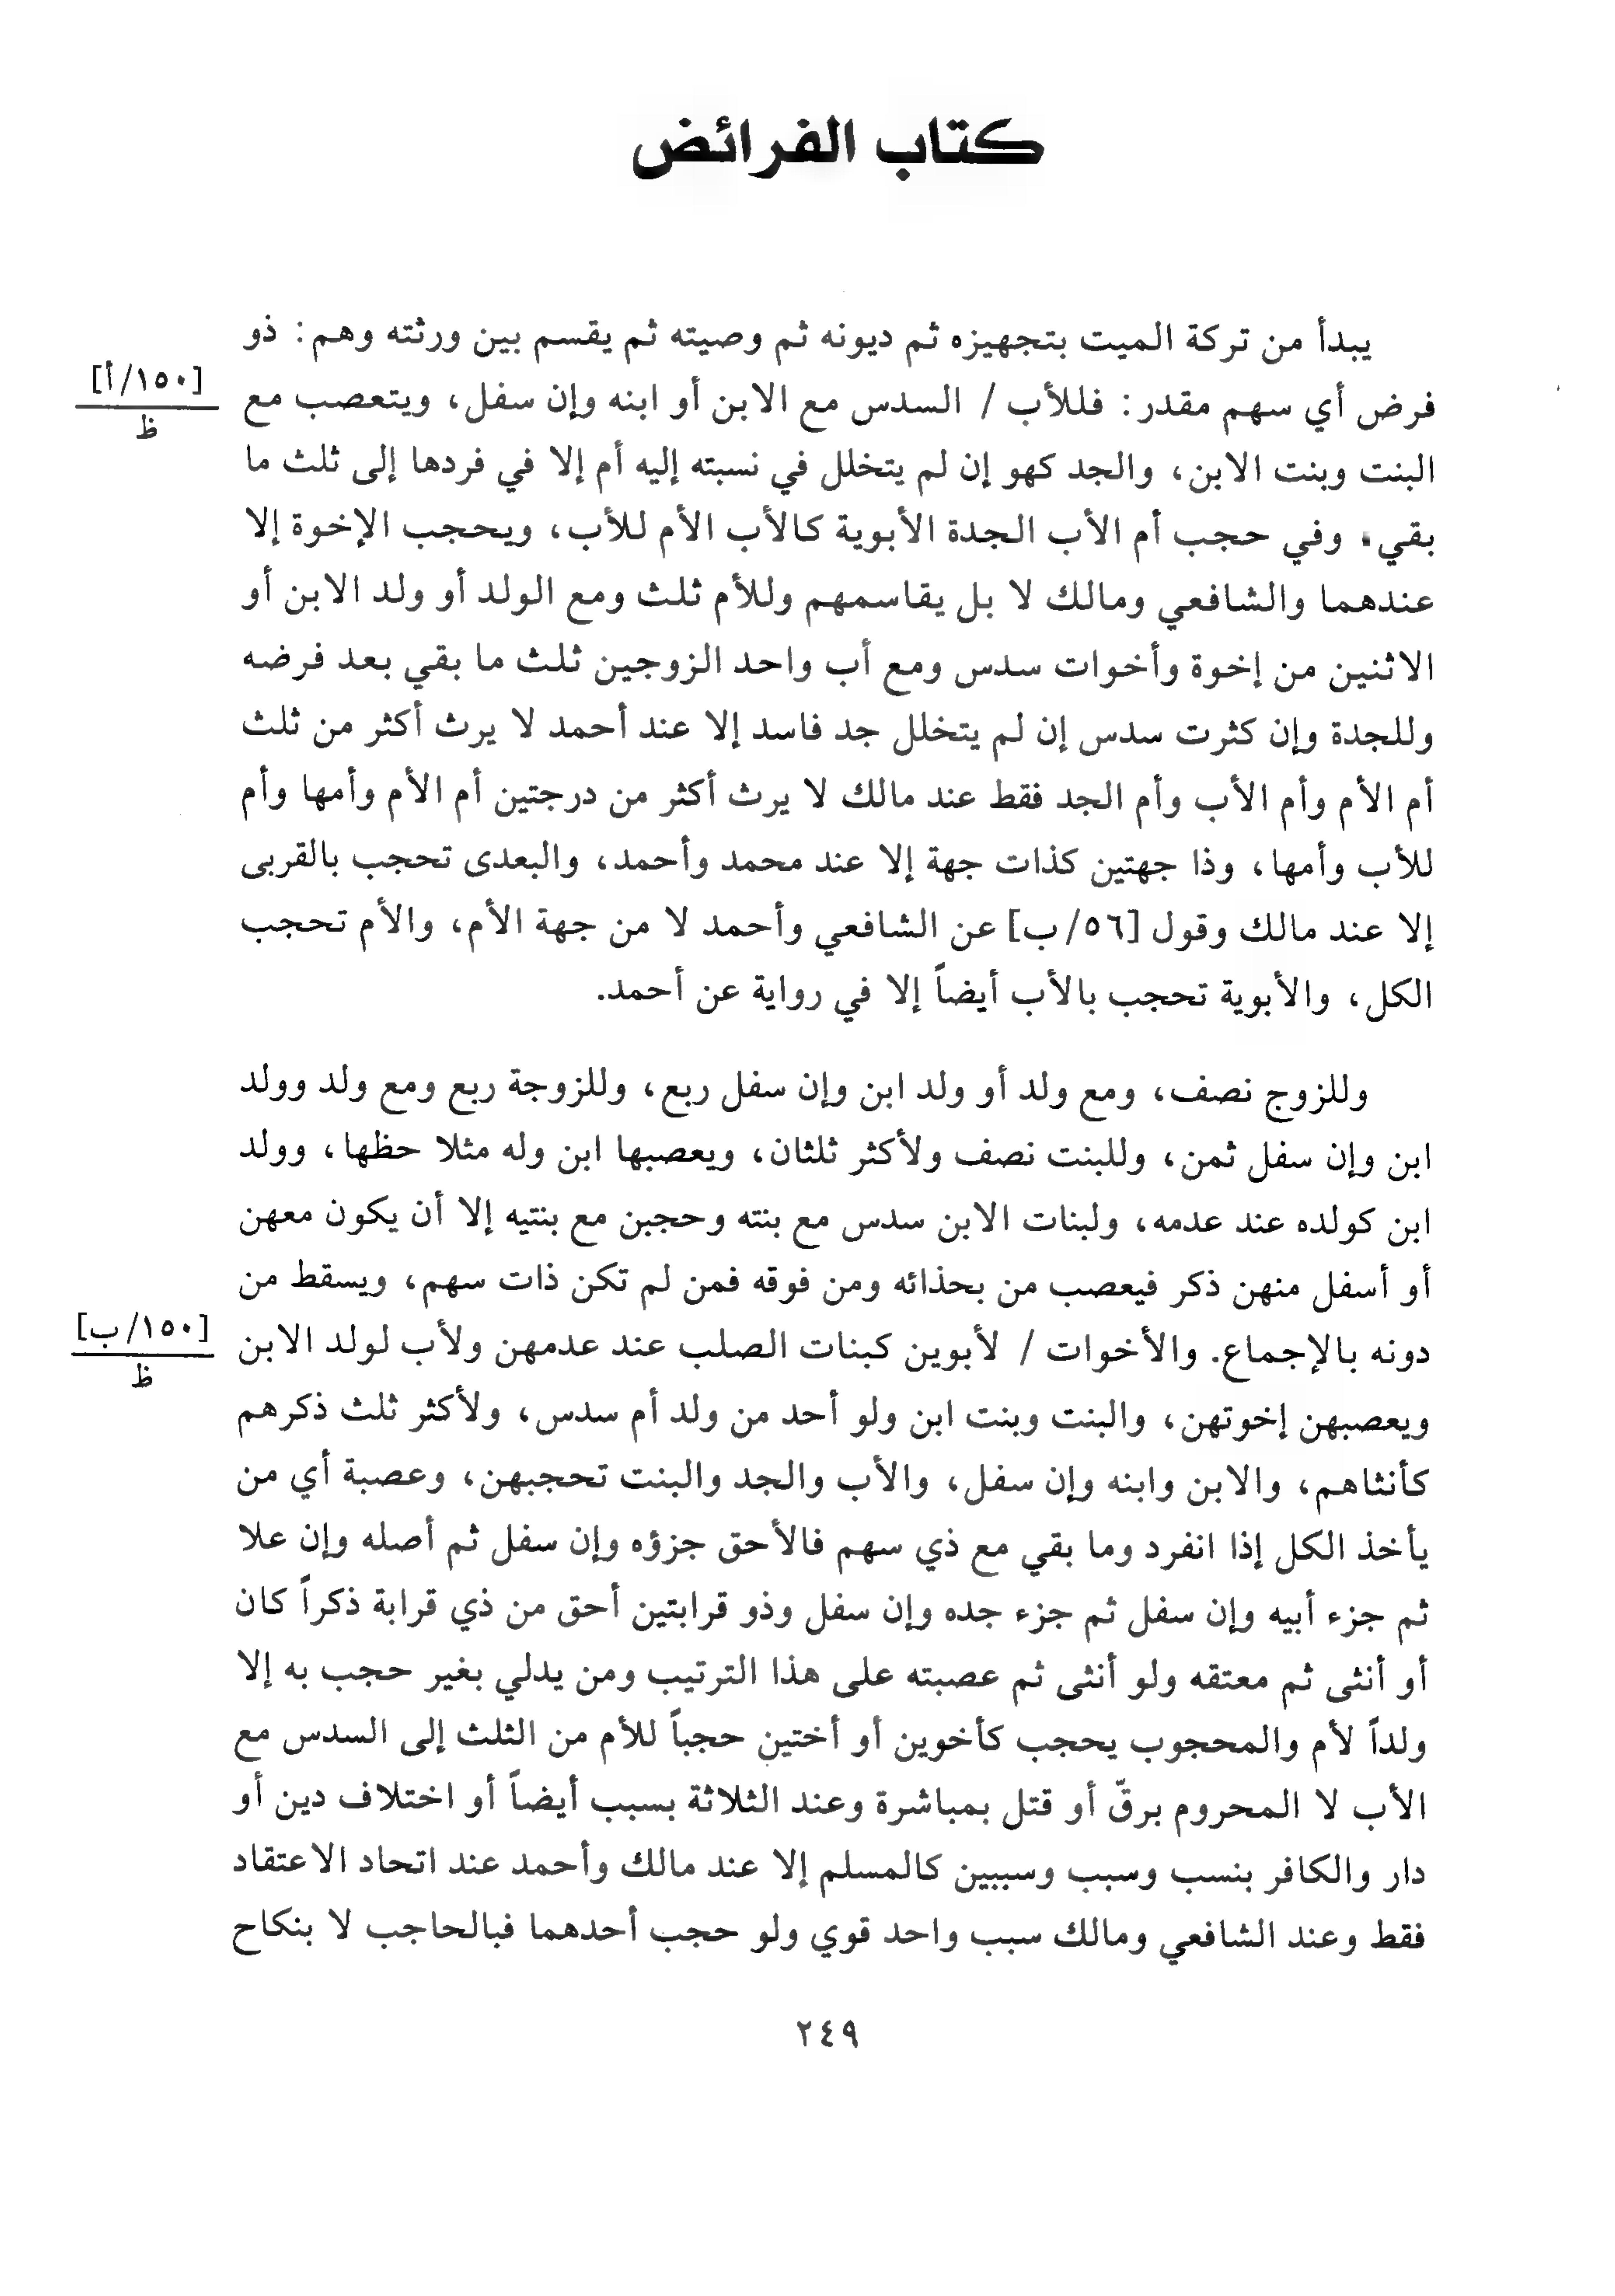 كتاب الفرائض
يبدأ من تركة الميت بتجهيزه ثم ديونه ثم وصيته ثم يقسم بين ورثته وهم: ذو
[١٥٠/أ]
ظ
فرض أي سهم مقدر: فللأب / السدس مع الابن أو ابنه وإن سفل، ويتعصب مع
البنت وبنت الابن، والجد كهو إن لم يتخلل في نسبته إليه أم إلا في فردها إلى ثلث ما
بقي. وفي حجب أم الأب الجدة الأبوية كالأب الأم للأب، ويحجب الإخوة إلا
عندهما والشافعي ومالك لا بل يقاسمهم وللأم ثلث ومع الولد أو ولد الابن أو
الاثنين من إخوة وأخوات سدس ومع أب واحد الزوجين ثلث ما بقي بعد فرضه
وللجدة وإن كثرت سدس إن لم يتخلل جد فاسد إلا عند أحمد لا يرث أكثر من ثلث
أم الأم وأم الأب وأم الجد فقط عند مالك لا يرث أكثر من درجتين أم الأم وأمها وأم
للأب وأمها، وذا جهتين كذات جهة إلا عند محمد وأحمد، والبعدى تحجب بالقربى
إلا عند مالك وقول [٥٦/ب] عن الشافعي وأحمد لا من جهة الأم، والأم تحجب
الكل، والأبوية تحجب بالأب أيضاً إلا في رواية عن أحمد.
وللزوج نصف، ومع ولد أو ولد ابن وإن سفل ربع، وللزوجة ربع ومع ولد وولد
ابن وإن سفل ثمن، وللبنت نصف ولأكثر ثلثان، ويعصبها ابن وله مثلا حظها، وولد
ابن كولده عند عدمه، ولبنات الابن سدس مع بنته وحجبن مع بنتيه إلا أن يكون معهن
أو أسفل منهن ذكر فيعصب من بحذائه ومن فوقه فمن لم تكن ذات سهم، ويسقط من
[١٥٠/ب]
ظ
دونه بالإجماع. والأخوات / لأبوين كبنات الصلب عند عدمهن ولأب لولد الابن
ويعصبهن إخوتهن، والبنت وبنت ابن ولو أحد من ولد أم سدس، ولأكثر ثلث ذكرهم
كأنثاهم، والابن وابنه وإن سفل، والأب والجد والبنت تحجبهن، وعصبة أي من
يأخذ الكل إذا انفرد وما بقي مع ذي سهم فالأحق جزؤه وإن سفل ثم أصله وإن علا
ثم جزء أبيه وإن سفل ثم جزء جده وإن سفل وذو قرابتين أحق من ذي قرابة ذكراً كان
أو أنثى ثم معتقه ولو أنثى ثم عصبته على هذا الترتيب ومن يدلي بغير حجب به إلا
ولداً لأم والمحجوب يحجب كأخوين أو أختين حجباً للأم من الثلث إلى السدس مع
الأب لا المحروم برقّ أو قتل بمباشرة وعند الثلاثة بسبب أيضاً أو اختلاف دين أو
دار والكافر بنسب وسبب وسببين كالمسلم إلا عند مالك وأحمد عند اتحاد الاعتقاد
فقط وعند الشافعي ومالك سبب واحد قوي ولو حجب أحدهما فبالحاجب لا بنكاح
٢٤٩